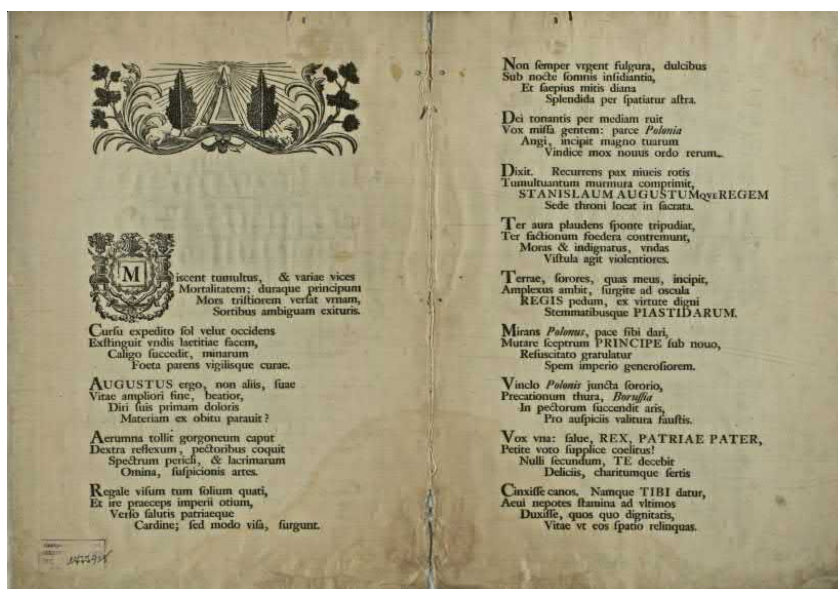 Miscent tumultus, & variae vices
Mortalitatem; duraque principum
Mors tristiorem versat vrnam,
Sortibus ambiguam exituris.
Cursu expedito sol velut occidens
Exstinguit vndis laetitiae facem,
Caligo succedit, minarum
Foeta parens vigilisque curae.
AUGUSTUS ergo, non aliis, suae
Vitae ampliori fine, beatior,
Diri suis primam doloris
Materiam ex obitu parauit?
Aerumna tollit gorgoneum caput
Dextra reflexum, pectoribus coquit
Spectrum pericli, & lacrimarum
Omina, suspicionis artes.
Regale visum tum solium quati,
Et ire praeceps imperii otium,
Verso salutis patriaeque
Cardine; sed modo visa, surgunt.
Non semper vrgent fulgura, dulcibus
Sub nocte somnis insidiantia,
Et saepius mitis diana
Splendida per spatiatur astra.
Dei tonantis per mediam ruit
Vox missa gentem: parce Polonia
Angi, incipit magno tuarum
Vindice mox nouus ordo rerum.
Dixit. Recurrens pax niueis rotis
Tumultuantum murmura comprimit,
STANISLAUM AUGUSTUMQVE REGEM
Sede throni locat in sacrata.
Ter aura plaudens sponte tripudiat,
Ter factionum foedera contremunt,
Moras & indignatus, vndas
Vistula agit violentiores.
Terrae, sorores, quas meus, incipit,
Amplexus ambit, surgite ad oscula
REGIS pedum, ex virtute digni
Stemmatibusque PIASTIDARUM.
Mirans Polonus, pace sibi dari,
Mutare sceptrum PRINCIPE sub nouo,
Resuscitato gratulatur
Spem imperio generosiorem.
Vinclo Polonis juncta sororio,
Precationum thura, Borussia
In pectorum succendit aris,
Pro auspiciis valitura faustis.
Vox vna: salue, REX, PATRIAE PATER,
Petite voto supplice coelitus!
Nulli secundum, TE decebit
Deliciis, charitumque sertis
Cinxisse canos. Namque TIBI datur,
Aeui nepotes stamina ad vltimos
Duxisse, quos quo dignitatis,
Vitae vt eos spatio relinquas.